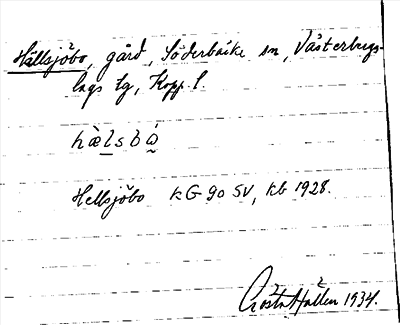 Hällsjöbo, gård, Söderbärke sn, Västerbergs-
lags tg, Kopp. l.
hæ̀lsbó̤
Hellsjöbo kG 90 SV, kb 1928.
Gösta Hallén 1934.